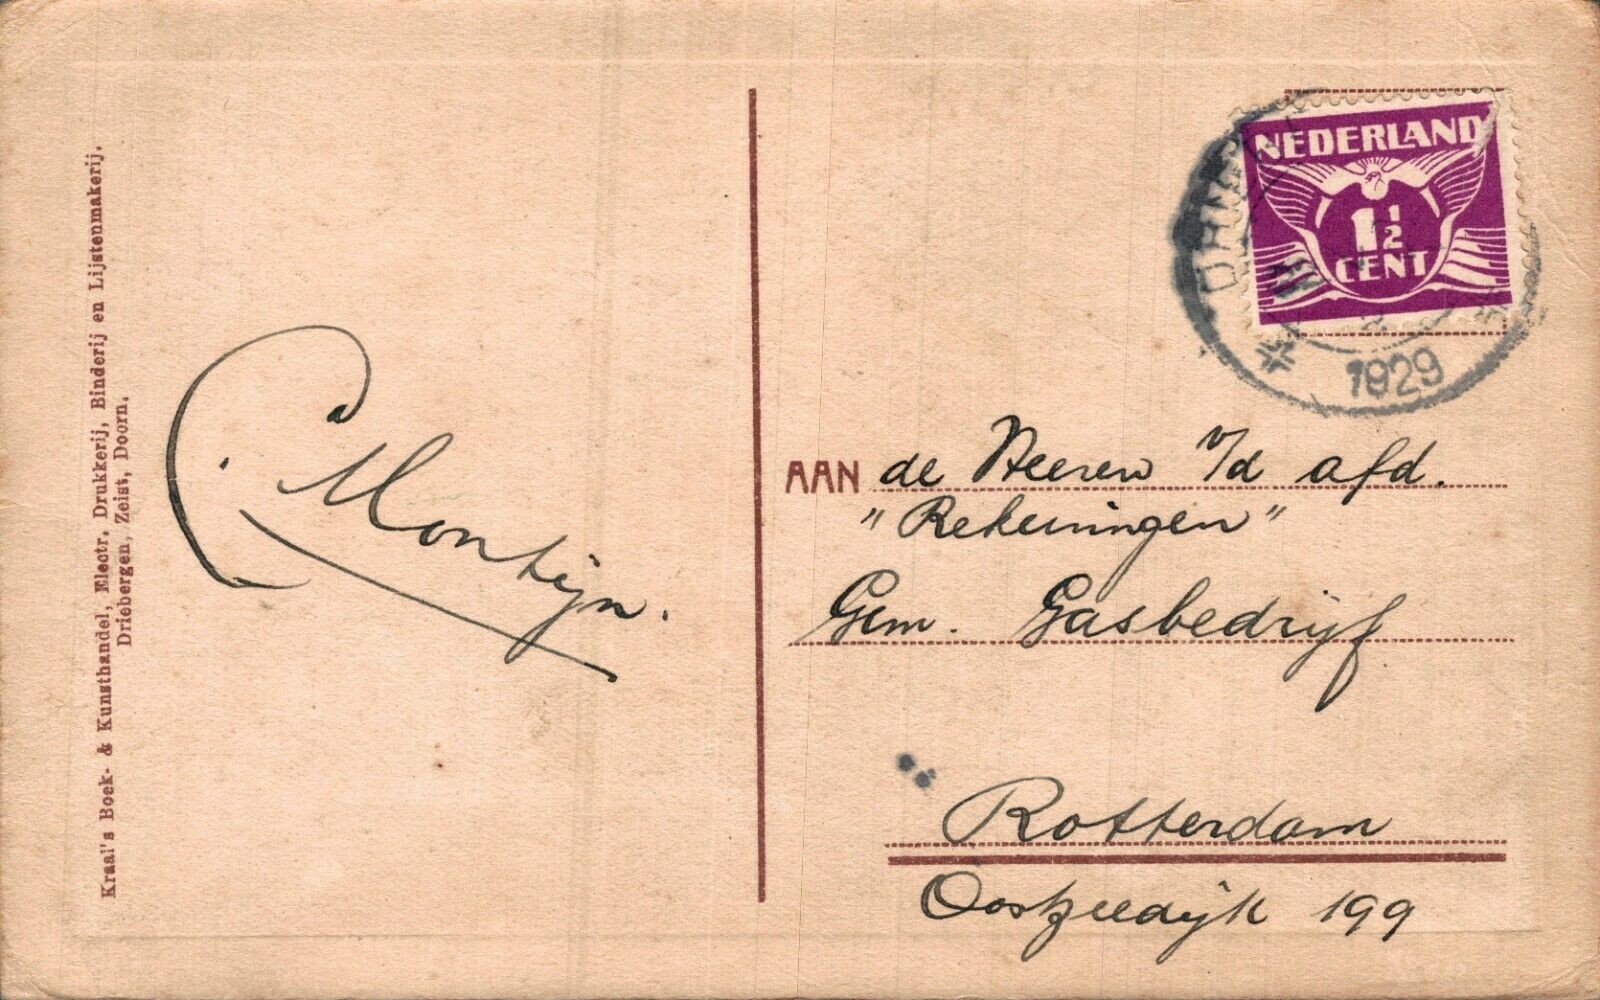 Kraal's Boek- & Kunsthandel, Electr. Drukkerij, Binderij en Lijstenmakerij.
Driebergen, Zeist, Doorn.
C Montijn.
NEDERLAND
1½
CENT
1929
AAN de Heeren v/d afd.
"Rekeningen"
Gem. Gasbedrijf
Rotterdam
Oostzeedijk 199